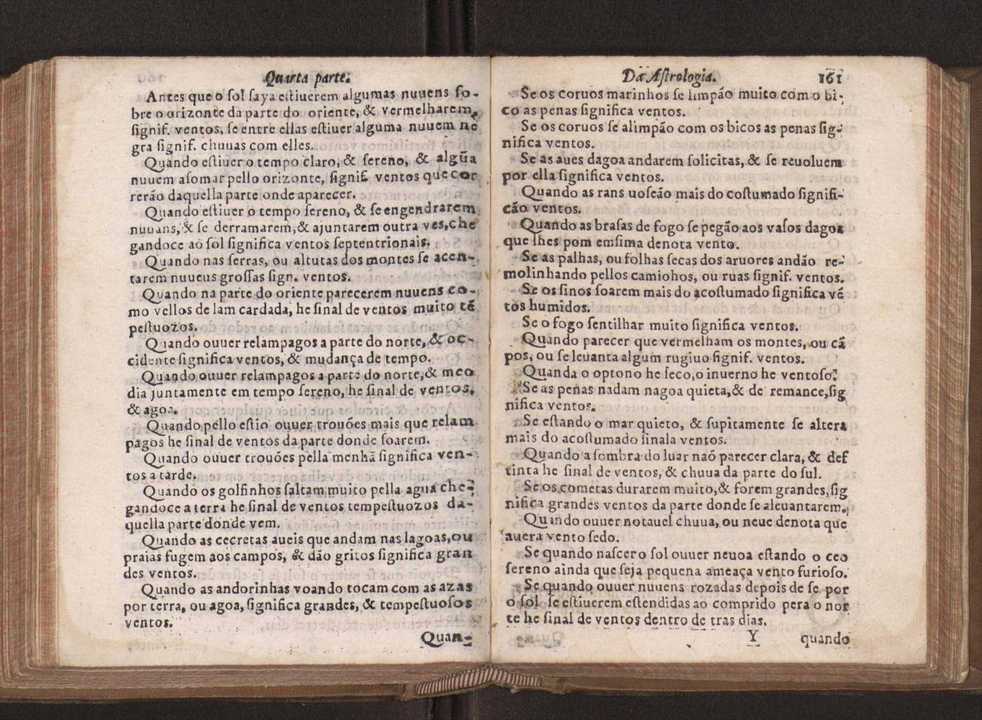 Quarta parte.
Antes que o sol saya estiuerem algumas nuuens so-
bre o orizonte da parte do oriente, & vermelharem,
signif. ventos, se entre ellas estiuer alguma nuuem ne
gra signif. chuuas com elles.
Quando estiuer o tempo claro, & sereno, & algũa
nuuem asomar pello orizonte, signif. ventos que cor
rerão daquella parte onde aparecer.
Quando estiuer o tempo sereno, & se engendrarem
nuuans, & se derramarem, & ajuntarem outra ves, che
gandoce ao sol significa ventos septentrionais.
Quando nas serras, ou altutas dos montes se acen-
tarem nuueus grossas sign. ventos.
Quando na parte do oriente parecerem nuuens co-
mo vellos de lam cardada, he sinal de ventos muito tẽ
pestuozos.
Quando ouuer relampagos a parte do norte, & oc-
cidente significa ventos, & mudança de tempo.
Quando ouuer relampagos a parte do norte, & meo
dia juntamente em tempo sereno, he sinal de ventos,
& agoa.
Quando pello estio ouuer trouões mais que relam
pagos he sinal de ventos da parte donde soarem.
Quando ouuer trouões pella menhã significa ven-
tos a tarde.
Quando os golfinhos saltam muito pella agua che-
gandoce a terra he sinal de ventos tempestuozos da-
quella parte donde vem.
Quando as cecretas aueis que andam nas lagoas, ou
praias fugem aos campos, & dão gritos significa gran
des ventos.
Quando as andorinhas voando tocam com as azas
por terra, ou agoa, significa grandes, & tempestuosos
ventos.
Quan-
Da Astrologia. 161
Se os coruos marinhos se limpão muito com o bi-
co as penas significa ventos.
Se os coruos se alimpão com os bicos as penas sig-
nifica ventos.
Se as aues dagoa andarem solicitas, & se reuoluem
por ella significa ventos.
Quando as rans uoseão mais do costumado signifi-
cão ventos.
Quando as brasas de fogo se pegão aos vasos dagoa
que lhes pom emsima denota vento.
Se as palhas, ou folhas secas dos aruores andão re-
molinhando pellos camiohos, ou ruas signif. ventos.
Se os sinos soarem mais do acostumado significa vẽ
tos humidos.
Se o fogo sentilhar muito significa ventos.
Quando parecer que vermelham os montes, ou cã
pos, ou se leuanta algum rugiuo signif. ventos.
Quanda o optono he seco, o inuerno he ventoso.
Se as penas nadam nagoa quieta, & de remance, sig
nifica ventos.
Se estando o mar quieto, & supitamente se altera
mais do acostumado sinala ventos.
Quando a sombra do luar naõ parecer clara, & def
tinta he sinal de ventos, & chuua da parte do sul.
Se os cometas durarem muito, & forem grandes, sig
nifica grandes ventos da parte donde se aleuantarem.
Quando ouuer notauel chuua, ou neue denota que
auera vento sedo.
Se quando nascer o sol ouuer neuoa estando o ceo
sereno ainda que seja pequena ameaça vento furioso.
Se quando ouuer nuuens rozadas depois de se por
o sol se estiuerem estendidas ao comprido pera o nor
te he sinal de ventos dentro de tras dias.
Y quando